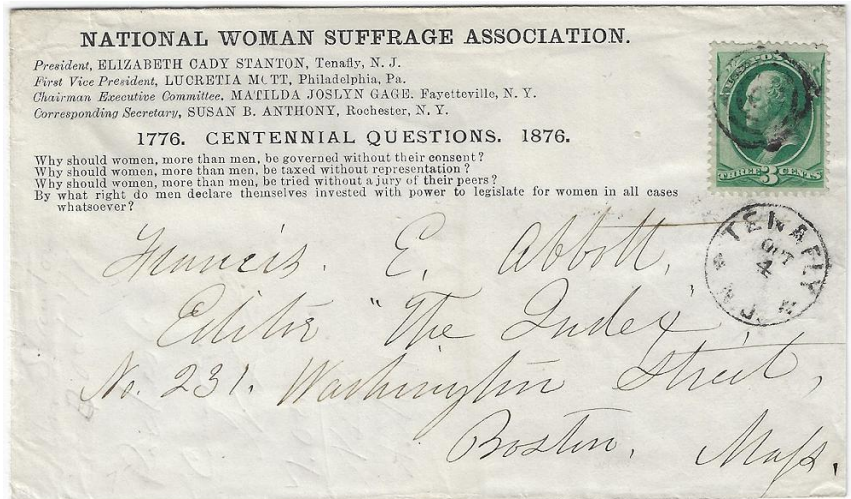 NATIONAL WOMAN SUFFRAGE ASSOCIATION.
President, ELIZABETH CADY STANTON, Tenafly, N. J.
First Vice President, LUCRETIA MOTT, Philadelphia, Pa.
Chairman Executive Committee, MATILDA JOSLYN GAGE, Fayetteville, N. Y.
Corresponding Secretary, SUSAN B. ANTHONY, Rochester, N. Y.
1776. CENTENNIAL QUESTIONS. 1876.
Why should women, more than men, be governed without their consent?
Why should women, more than men, be taxed without representation?
Why should women, more than men, be tried without a jury of their peers?
By what right do men declare themselves invested with power to legislate for women in all cases
whatsoever?
THREE 3 CENTS
TENAFLY
OCT
4
N.J.
Francis. E. Abbott,
Editor "The Index"
No. 231. Washington Street,
Boston, Mass.